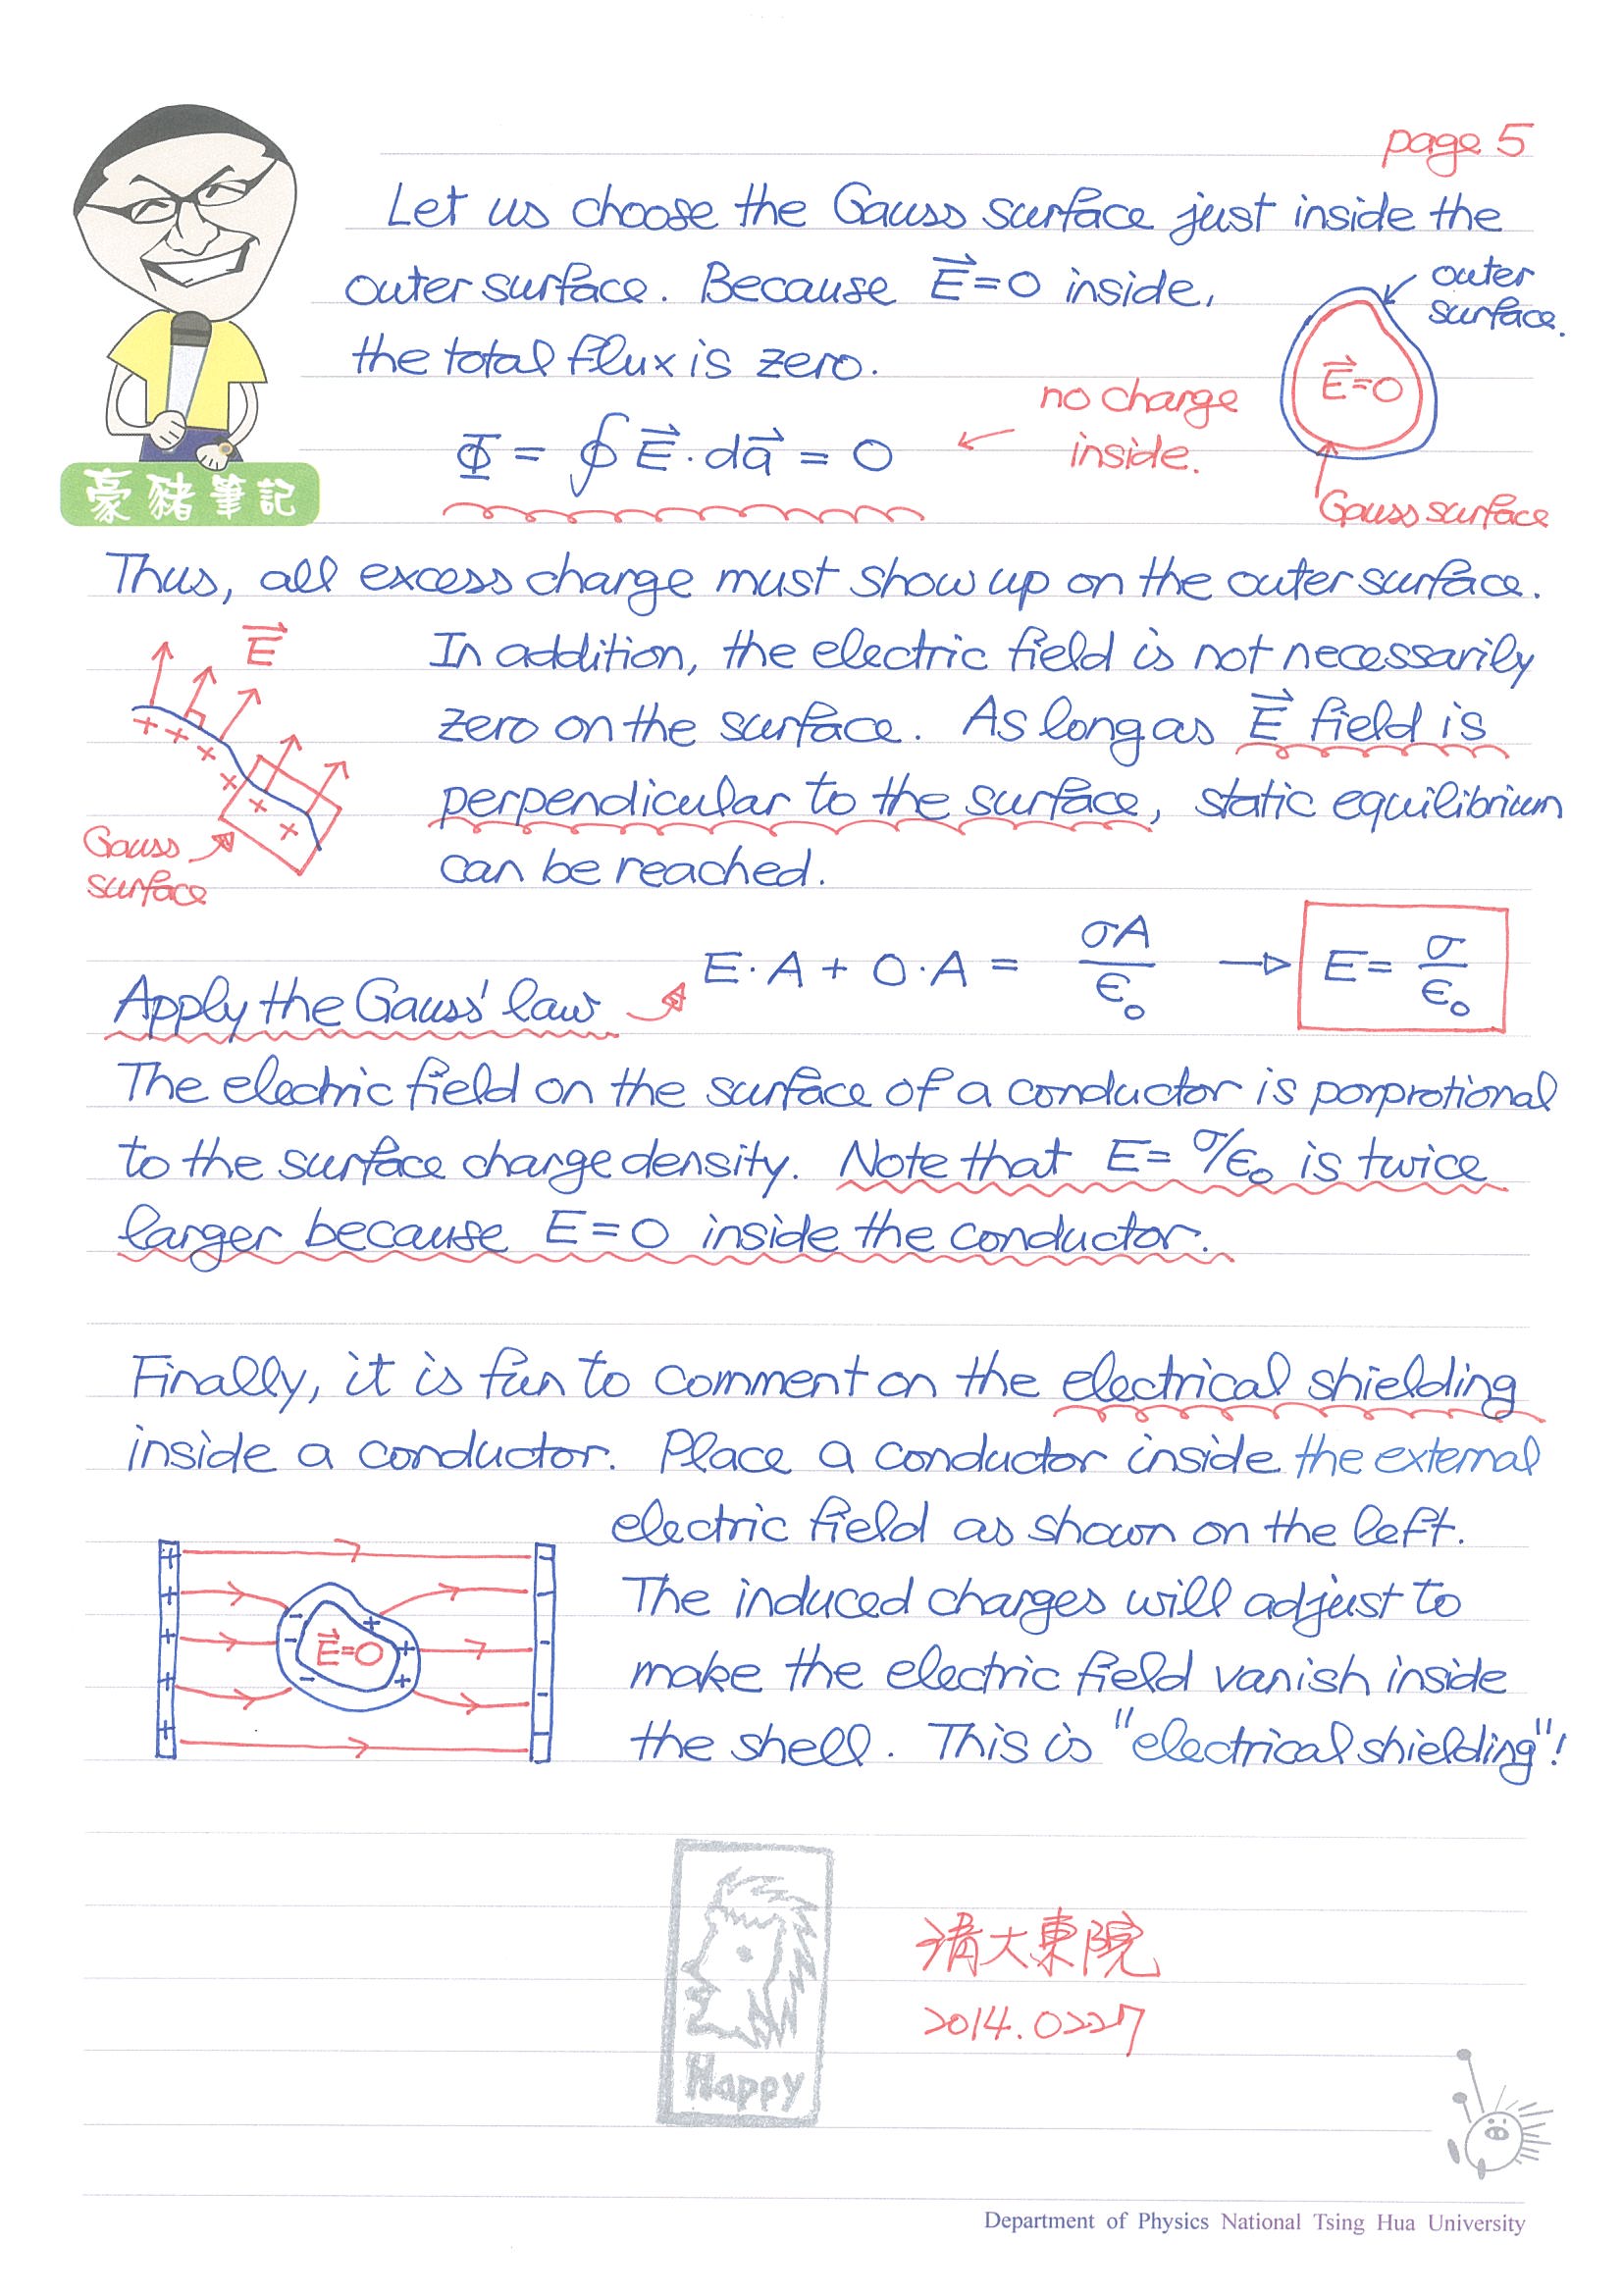 page 5
Let us choose the Gauss surface just inside the
outer surface. Because E⃗=0 inside,
outer
surface.
the total flux is zero.
E⃗=0
no charge
inside.
Φ = ∮ E⃗·da⃗ = 0
Gauss surface
豪豬筆記
Thus, all excess charge must show up on the outer surface.
E⃗
In addition, the electric field is not necessarily
zero on the surface. As long as E⃗ field is
perpendicular to the surface, static equilibrium
can be reached.
Gauss
surface
Apply the Gauss' law
E·A + 0·A = σA/ε₀ → E = σ/ε₀
The electric field on the surface of a conductor is porprotional
to the surface charge density. Note that E= σ/ε₀ is twice
larger because E=0 inside the conductor.
Finally, it is fun to comment on the electrical shielding
inside a conductor. Place a conductor inside the external
electric field as shown on the left.
The induced charges will adjust to
make the electric field vanish inside
the shell. This is "electrical shielding"!
E⃗=0
Happy
清大東院
2014.0227
Department of Physics National Tsing Hua University